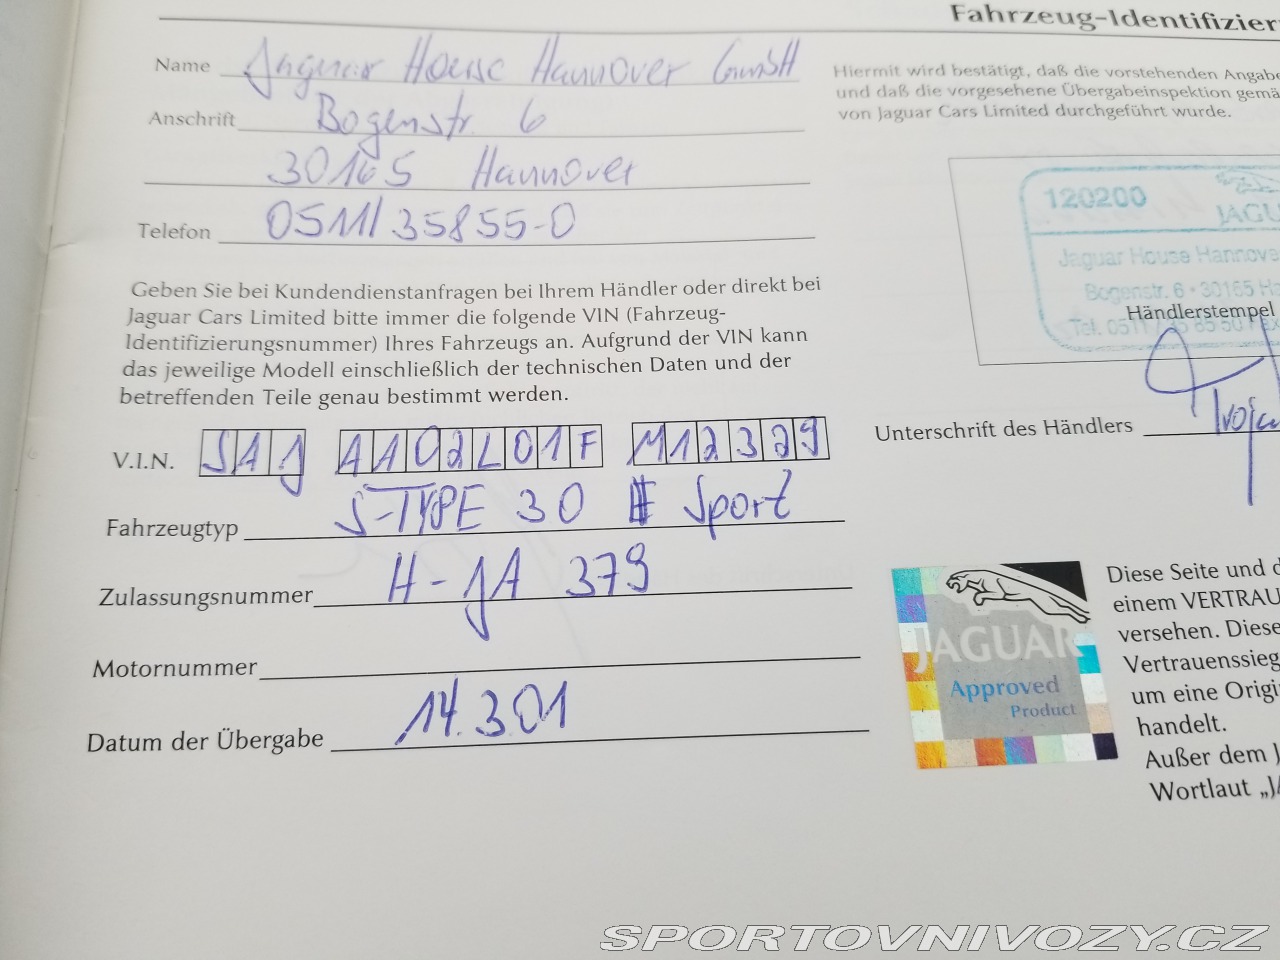 Fahrzeug-Identifizier
Name Jaguar House Hannover GmbH
Anschrift Bogenstr. 6
30165 Hannover
Telefon 0511/35855-0
Geben Sie bei Kundendienstanfragen bei Ihrem Händler oder direkt bei
Jaguar Cars Limited bitte immer die folgende VIN (Fahrzeug-
Identifizierungsnummer) Ihres Fahrzeugs an. Aufgrund der VIN kann
das jeweilige Modell einschließlich der technischen Daten und der
betreffenden Teile genau bestimmt werden.
V.I.N. SAJ AA02L01F M12329
Fahrzeugtyp S-TYPE 30 Sport
Zulassungsnummer H-JA 379
Motornummer
Datum der Übergabe 14.3.01
Hiermit wird bestätigt, daß die vorstehenden Angabe
und daß die vorgesehene Übergabeinspektion gemä
von Jaguar Cars Limited durchgeführt wurde.
120200 JAGU
Jaguar House Hannove
Bogenstr. 6 · 30165 Ha
Händlerstempel
Tel. 0511 /
Unterschrift des Händlers
JAGUAR
Approved
Product
Diese Seite und d
einem VERTRAU
versehen. Diese
Vertrauenssieg
um eine Origi
handelt.
Außer dem J
Wortlaut „JA
SPORTOVNIVOZY.CZ